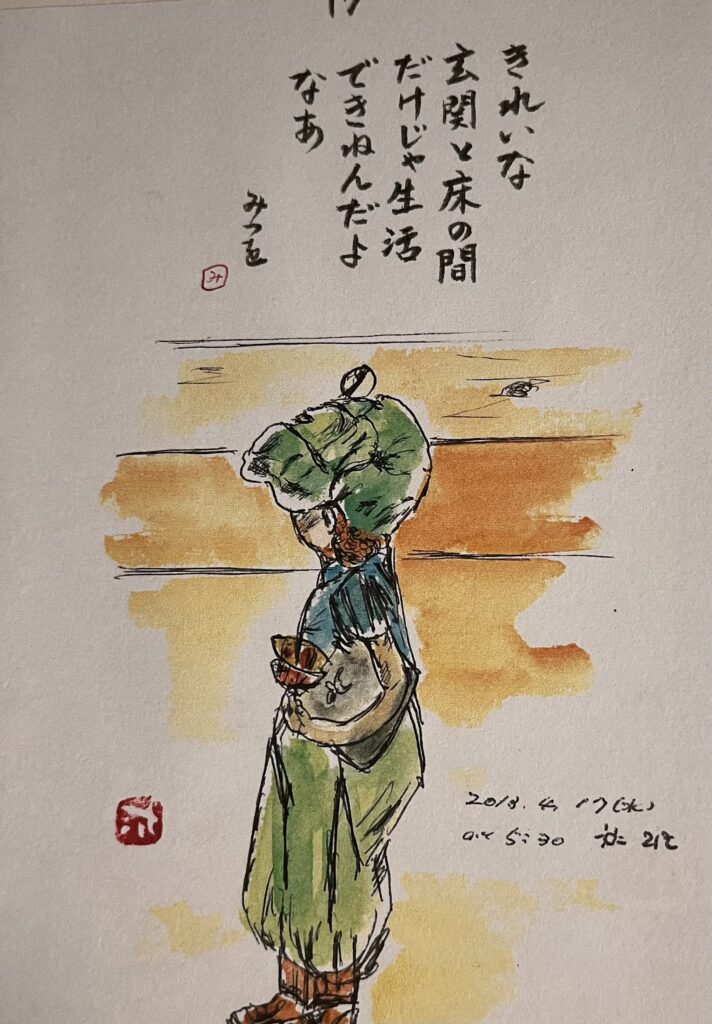 17
きれいな
玄関と床の間
だけじゃ生活
できねんだよ
なあ
みつを
み
2013. 4. 17(水)
5:30 21℃